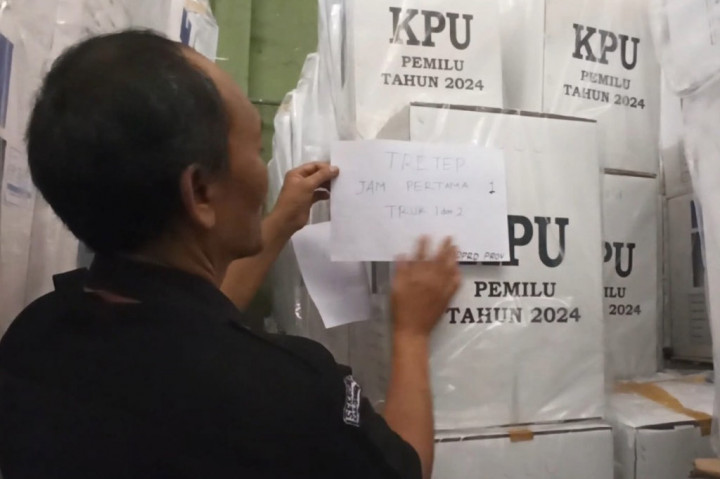 KPU
PEMILU
TAHUN 2024
KPU
PEMILU
TAHUN 2024
TRETEP
JAM PERTAMA 1
TRUK 1 dan 2
KPU
PEMILU
TAHUN 2024
DPRD PROV
PU
ILU
2024